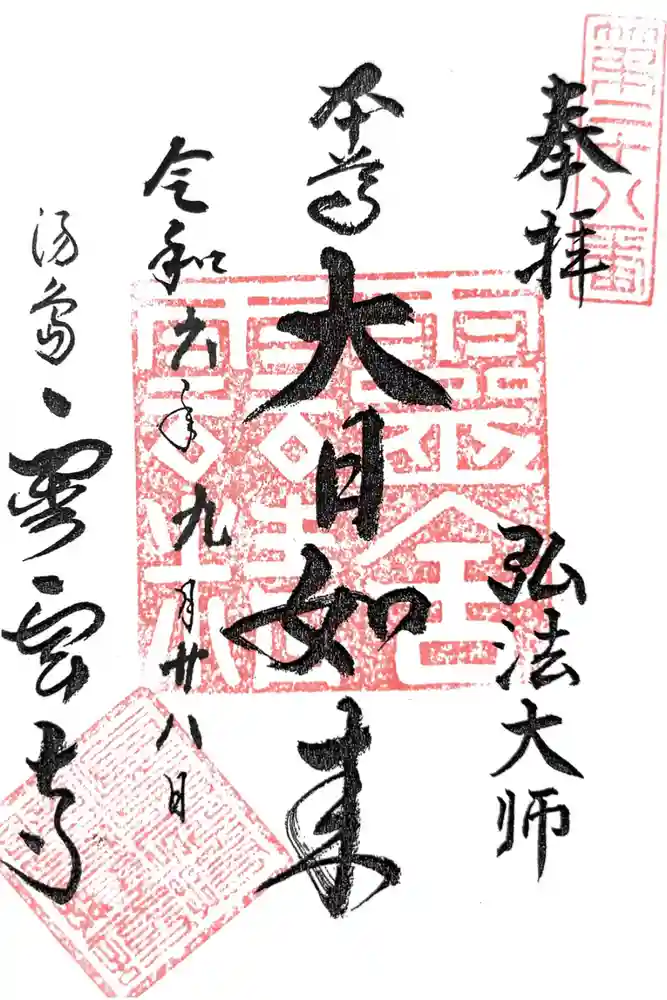 奉拝
弘法大师
本尊
大日如来
令和六年九月廿八日
湯島
霊雲寺